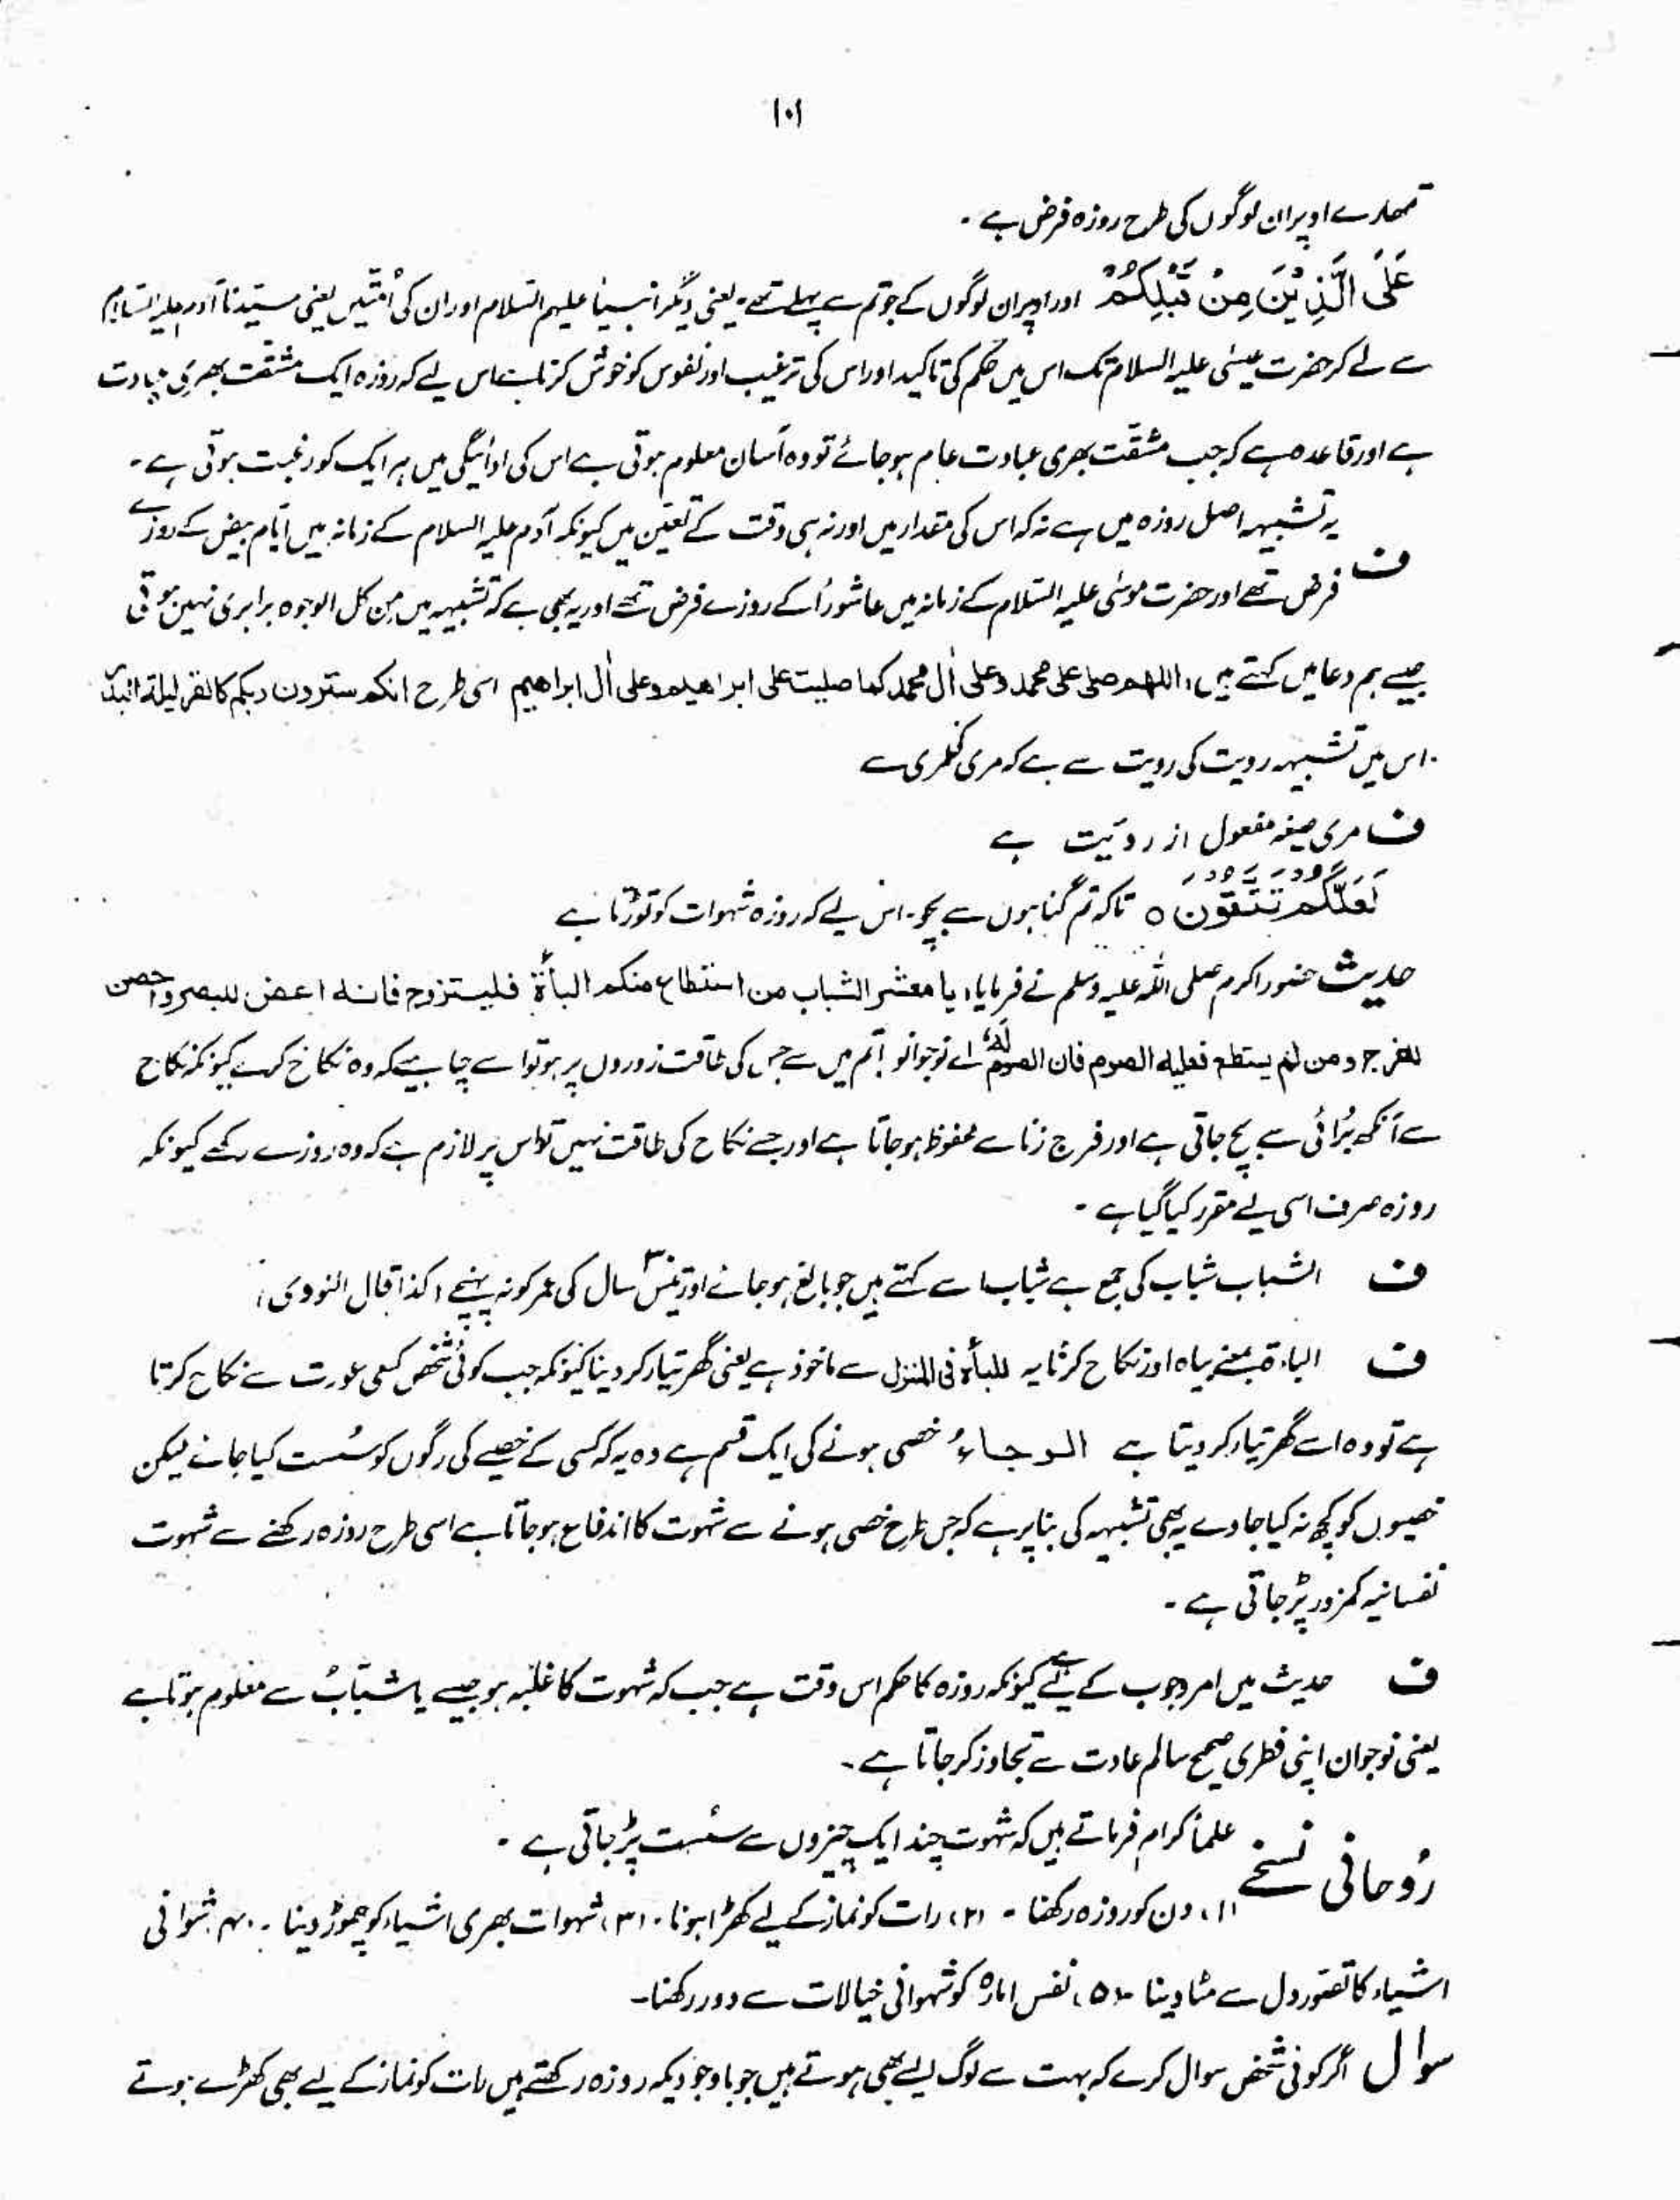 ۱۰۱
تمھارے اوپر ان لوگوں کی طرح روزہ فرض ہے ۔
عَلَى الَّذِيْنَ مِنْ قَبْلِكُمْ اور اوپر ان لوگوں کے جو تم سے پہلے تھے ۔ یعنی دیگر انبیأ علیہم السّلام اور ان کی اُمتیں یعنی سیّدنا آدم علیہ السّلام
سے لے کر حضرت عیسیٰ علیہ السلام تک اس میں حکم کی تاکید اور اس کی ترغیب اور نفوس کو خوش کرنا ہے اس لیے کہ روزہ ایک مشقّت بھری عبادت
ہے اور قاعدہ ہے کہ جب مشقّت بھری عبادت عام ہو جائے تو وہ آسان معلوم ہوتی ہے اس کی ادائیگی میں ہر ایک کو رغبت ہوتی ہے ۔
یہ تشبیہہ اصل روزہ میں ہے نہ کہ اس کی مقدار میں اور نہ ہی وقت کے تعیّن میں کیونکہ آدم علیہ السلام کے زمانہ میں ایّام بیض کے روزے
ف فرض تھے اور حضرت موسٰی علیہ السّلام کے زمانہ میں عاشورأ کے روزے فرض تھے اور یہ بھی ہے کہ تشبیہہ میں مِن کل الوجوہ برابری نہیں ہوتی
جیسے ہم دعا میں کہتے ہیں ، اللهم صلی علی محمد وعلی اٰل محمد کما صلیت علی ابراهیم وعلی اٰل ابراهیم اسی طرح انکم سترون ربکم کالقمر لیلة البدر
اس میں تشبیہہ رویت کی رویت سے ہے کہ مری کی مری سے
ف مری صیغہ مفعول از رویٔت ہے
لَعَلَّكُمْ تَتَّقُوْنَ ○ تاکہ تم گناہوں سے بچو ۔ اس لیے کہ روزہ شہوات کو توڑتا ہے
حدیث حضور اکرم صلی اللہ علیہ وسلم نے فرمایا ، یا معشر الشباب من استطاع منکم البأة فلیتزوج فانه اعض للبصر واحصن
للفرج و من لم یستطع فعلیه الصوم فان الصوم لَهُ اے نوجوانو ! تم میں سے جس کی طاقت زوروں پر ہو تو اسے چاہیے کہ وہ نکاح کرے کیونکہ نکاح
سے آنکھ بُرائی سے بچ جاتی ہے اور فرج زنا سے محفوظ ہو جاتا ہے اور جسے نکاح کی طاقت نہیں تو اس پر لازم ہے کہ وہ روزے رکھے کیونکہ
روزہ صرف اسی لیے مقرر کیا گیا ہے ۔
ف الشباب شباب کی جمع ہے شباب اسے کہتے ہیں جو بالغ ہو جانے اور تیس ۳۰ سال کی عمر کو نہ پہنچے ، کذا قال النووی ،
ف الباءۃ بمعنے بیاہ اور نکاح کرنا یہ للبأة فی المنزل سے ماخوذ ہے یعنی گھر تیار کر دینا کیونکہ جب کوئی شخص کسی عورت سے نکاح کرتا
ہے تو وہ اسے گھر تیار کر دیتا ہے الوجاءُ خصی ہونے کی ایک قسم ہے وہ یہ کہ کسی کے خصیے کی رگوں کو سُست کیا جانے لیکن
خصیوں کو کچھ نہ کیا جاوے یہ بھی تشبیہہ کی بنا پر ہے کہ جس طرح خصی ہونے سے شہوت کا اندفاع ہو جاتا ہے اسی طرح روزہ رکھنے سے شہوت
نفسانیہ کمزور پڑ جاتی ہے ۔
ف حدیث میں امر وجوب کے لیے ہے کیونکہ روزہ کا حکم اس وقت ہے جب کہ شہوت کا غلبہ ہو جیسے یا شبَّابُ سے معلوم ہوتا ہے
یعنی نوجوان اپنی فطری صحیح سالم عادت سے تجاوز کر جاتا ہے ۔
رُوحانی نسخے علمأ کرام فرماتے ہیں کہ شہوت چند ایک چیزوں سے سُست پڑ جاتی ہے ۔
(۱) دن کو روزہ رکھنا ۔ (۲) رات کو نماز کے لیے کھڑا ہونا ۔ (۳) شہوات بھری اشیاء کو چھوڑ دینا ۔ (۴) شہوانی
اشیاء کا تصوّر دل سے مٹا دینا ۔ (۵) نفس امارہ کو شہوانی خیالات سے دور رکھنا ۔
سوال اگر کوئی شخص سوال کرے کہ بہت سے لوگ ایسے بھی ہوتے ہیں جو باوجودیکہ روزہ رکھتے ہیں رات کو نماز کے لیے بھی کھڑے ہوتے